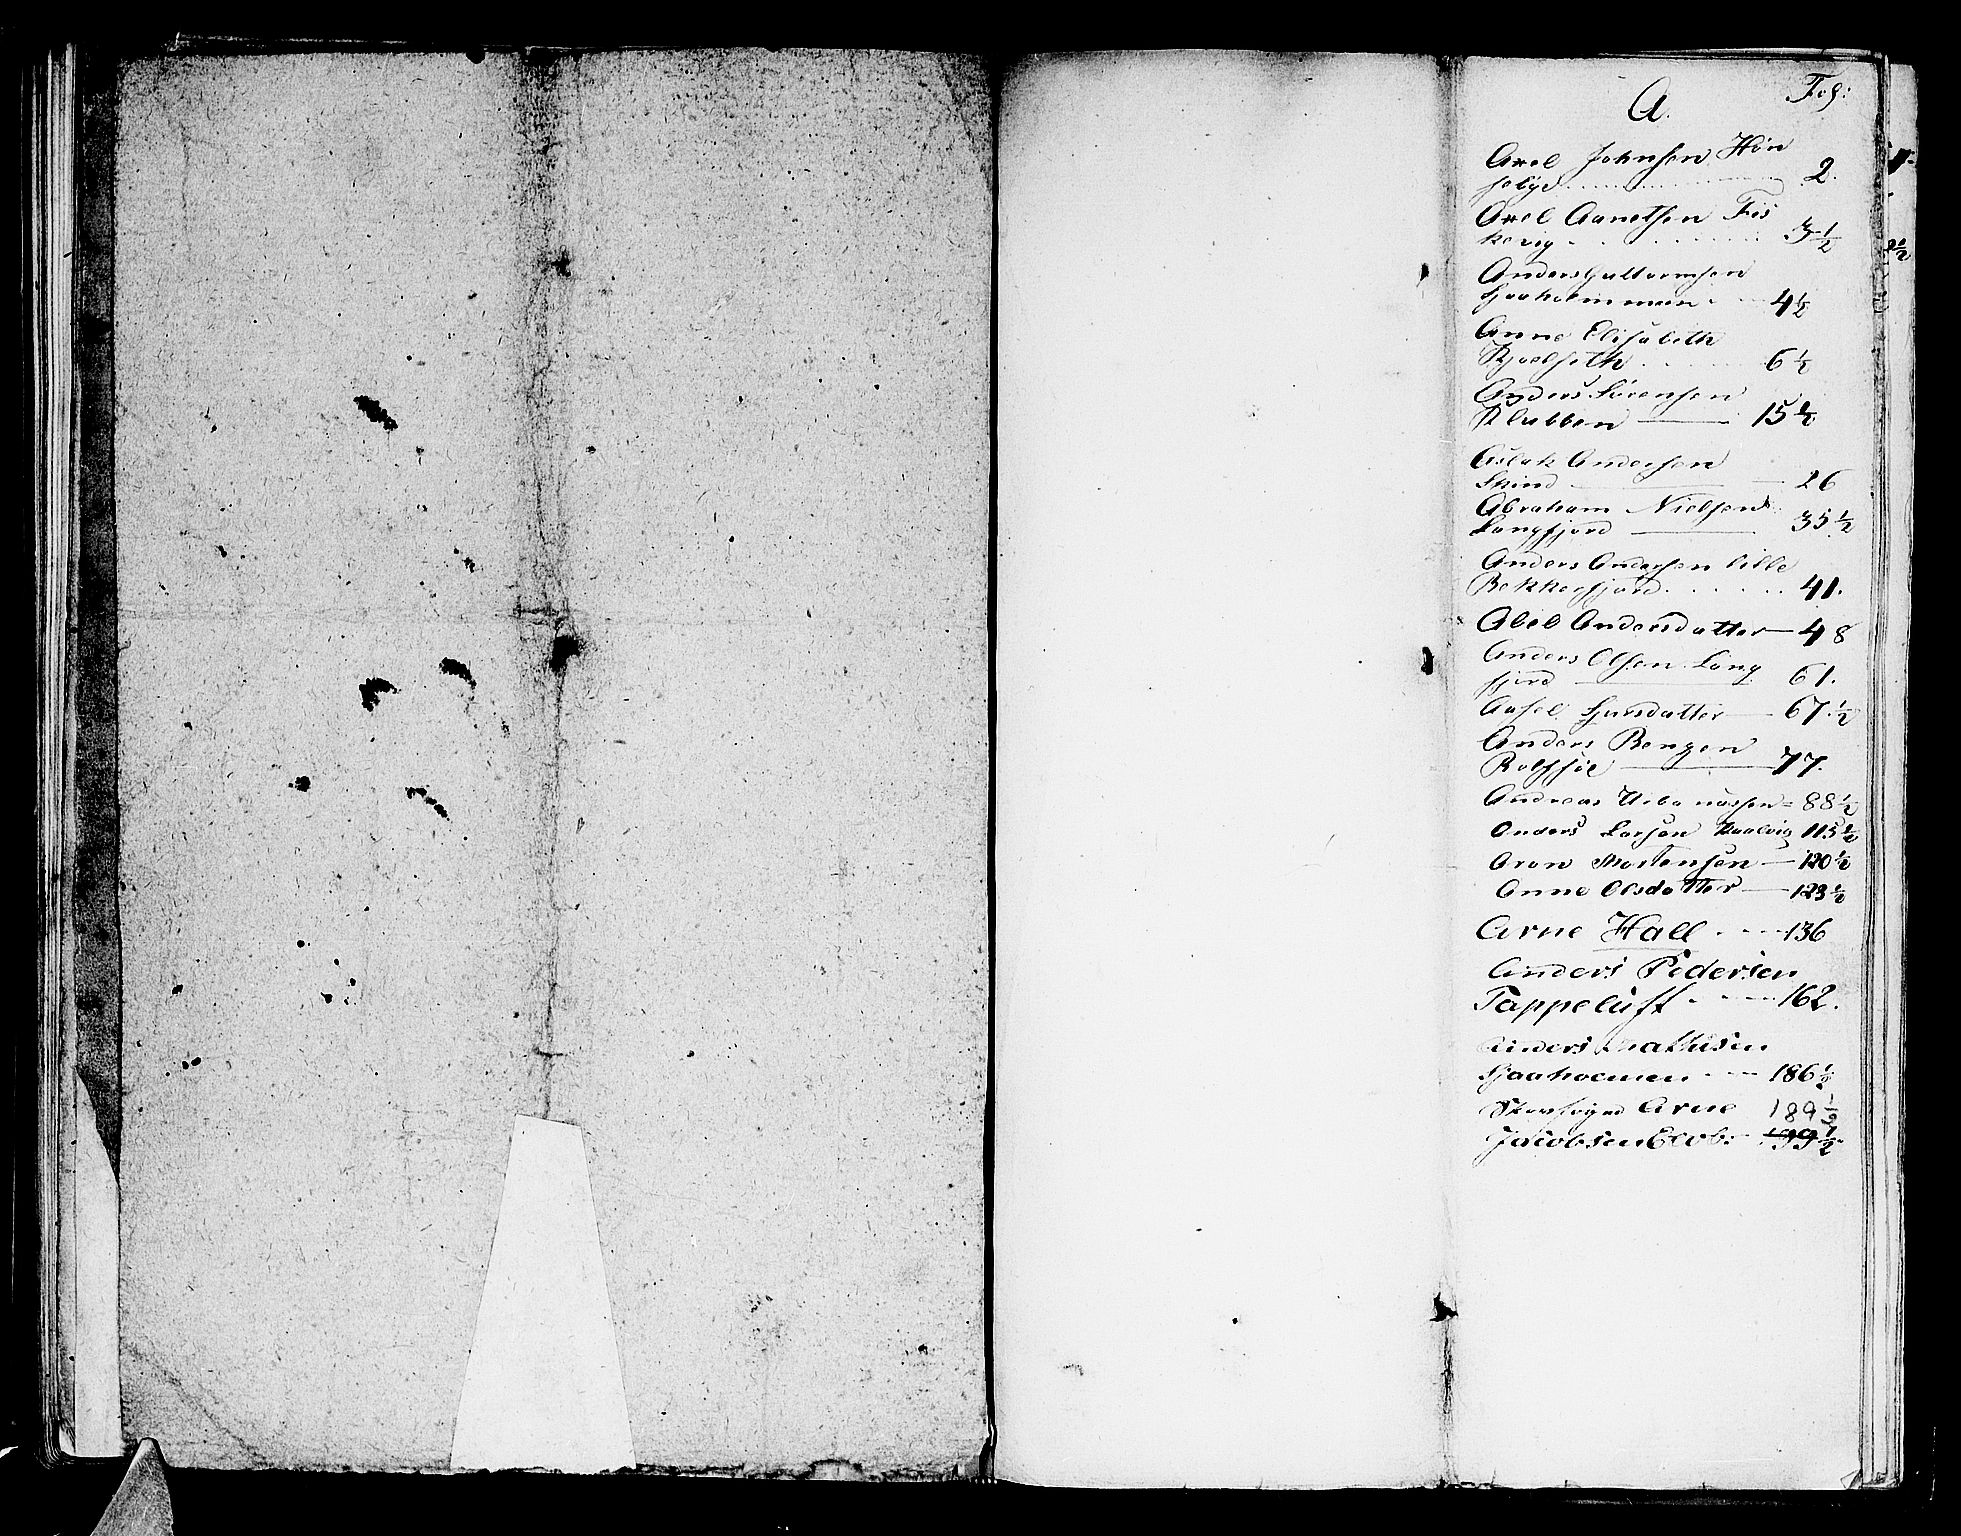 A. Fol:
Axel Johnsen Høn
sebye 2.
Axel Aanethsen Fis
kevig 3 1/2
Anders Guttormsen
Sjaaholmmen 4 1/2
Anne Elisabeth
Kjoelseth 6 1/2
Anders Sørensen
Klubben 15 1/2
Aslak Andersen
26
Abraham Nielsen
Langfjord 35 1/2
Anders Andersen lille
Bekkerfjord 41.
Abel Andersdatter 48
Anders Olsen Lang
fjord 61.
Aasel Sjursdatter 67 1/2
Anders Bengen
Rolfsøe 77.
Andreas Urbanussen 88 1/2
Anders Larsen 115 1/2
Aron Mortensen 120 1/2
Anne Olsdatter 123 1/2
Arne Hall 136
Anders Pedersen
Tappeluft 162.
Anders Mathisen
Sjaaholmen 186 1/2
Arne 189 1/2
Jacobsen 199 1/2